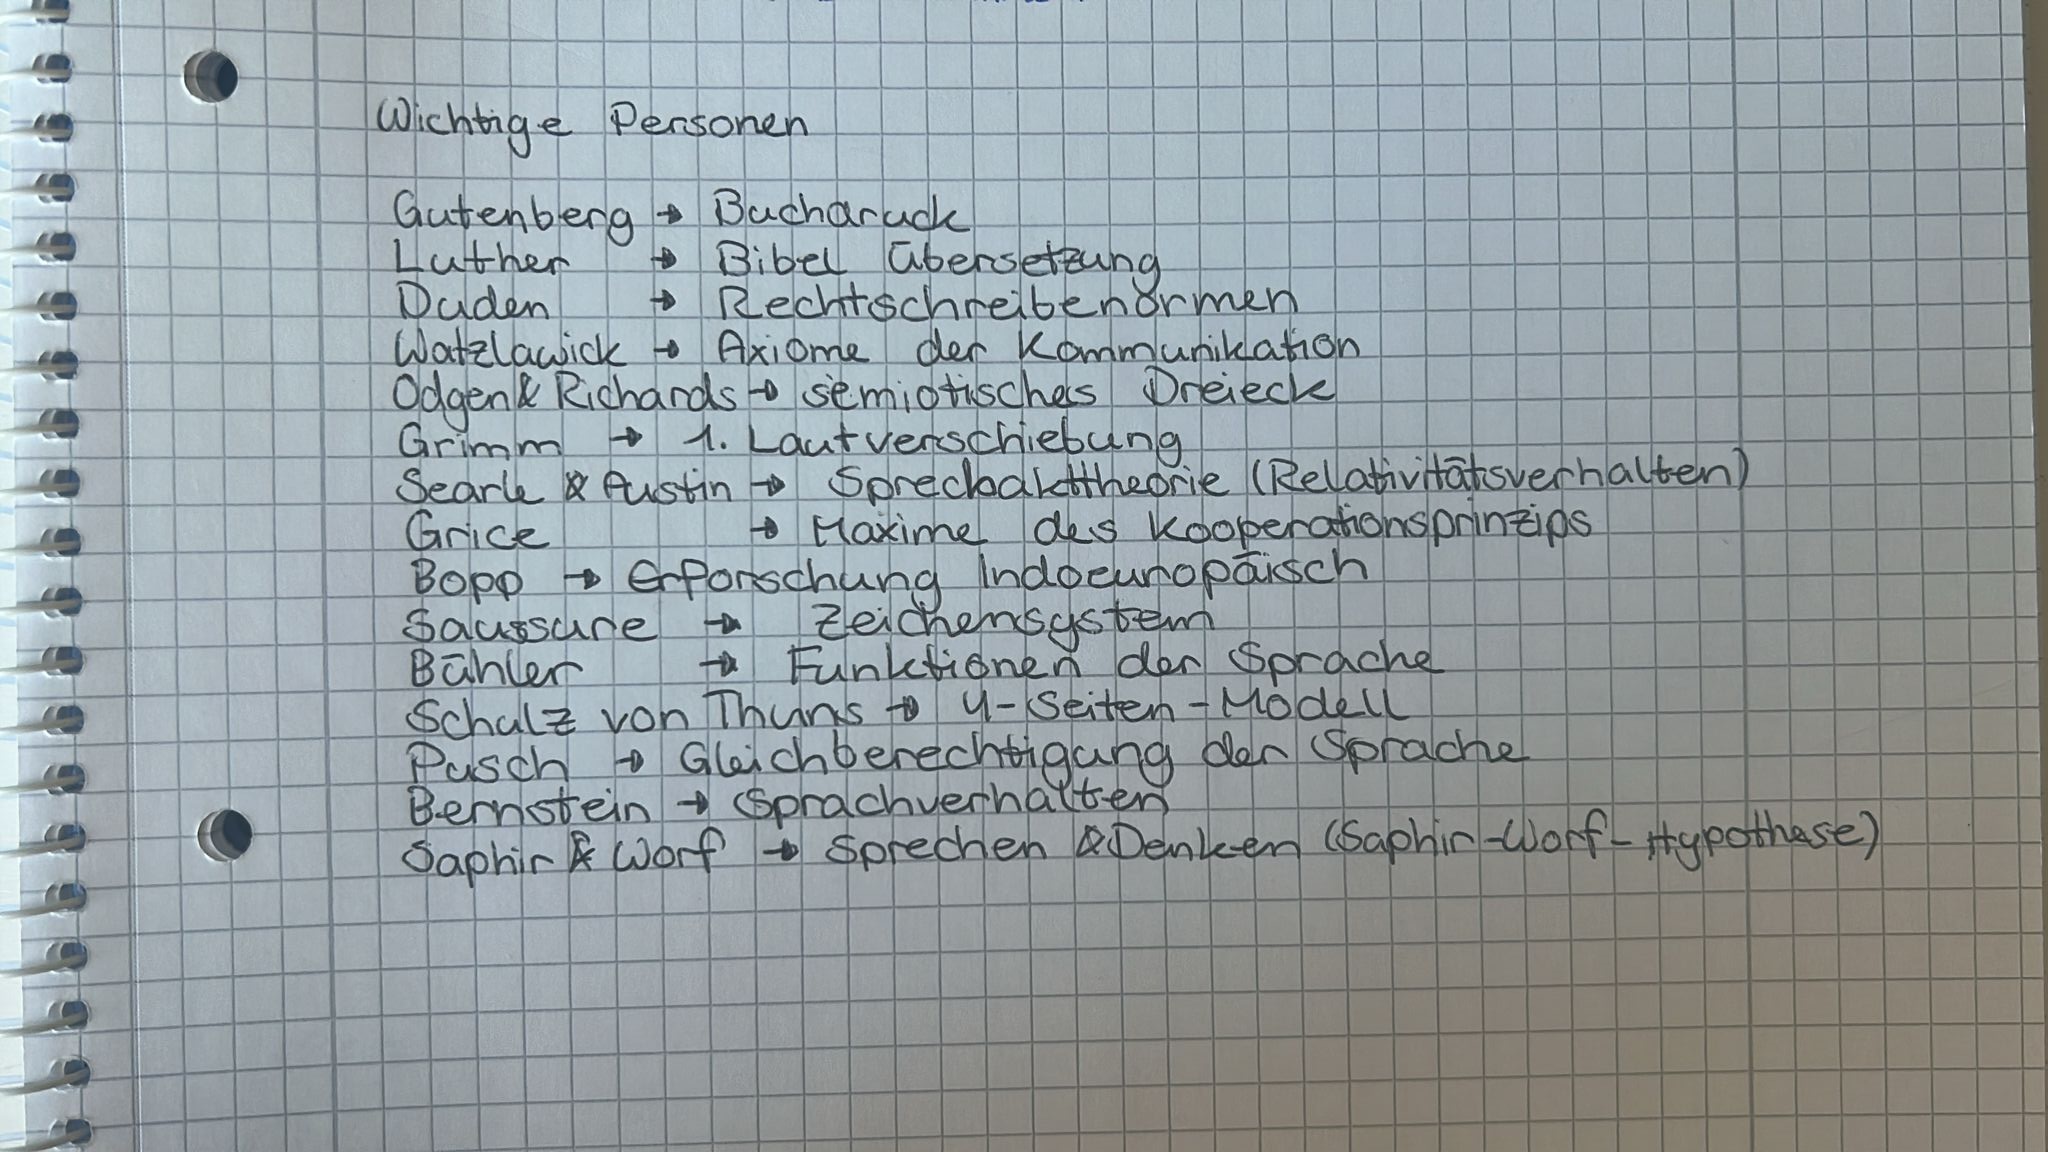 Wichtige Personen
Gutenberg → Buchdruck
Luther → Bibel Übersetzung
Duden → Rechtschreibenormen
Watzlawick → Axiome der Kommunikation
Odgen & Richards → semiotisches Dreieck
Grimm → 1. Lautverschiebung
Searle & Austin → Sprechakttheorie (Relativitätsverhalten)
Grice → Maxime des Kooperationsprinzips
Bopp → Erforschung Indoeuropäisch
Saussure → Zeichensystem
Bühler → Funktionen der Sprache
Schulz von Thuns → 4-Seiten-Modell
Pusch → Gleichberechtigung der Sprache
Bernstein → Sprachverhalten
Saphir & Worf → Sprechen & Denken (Saphir-Worf-Hypothese)